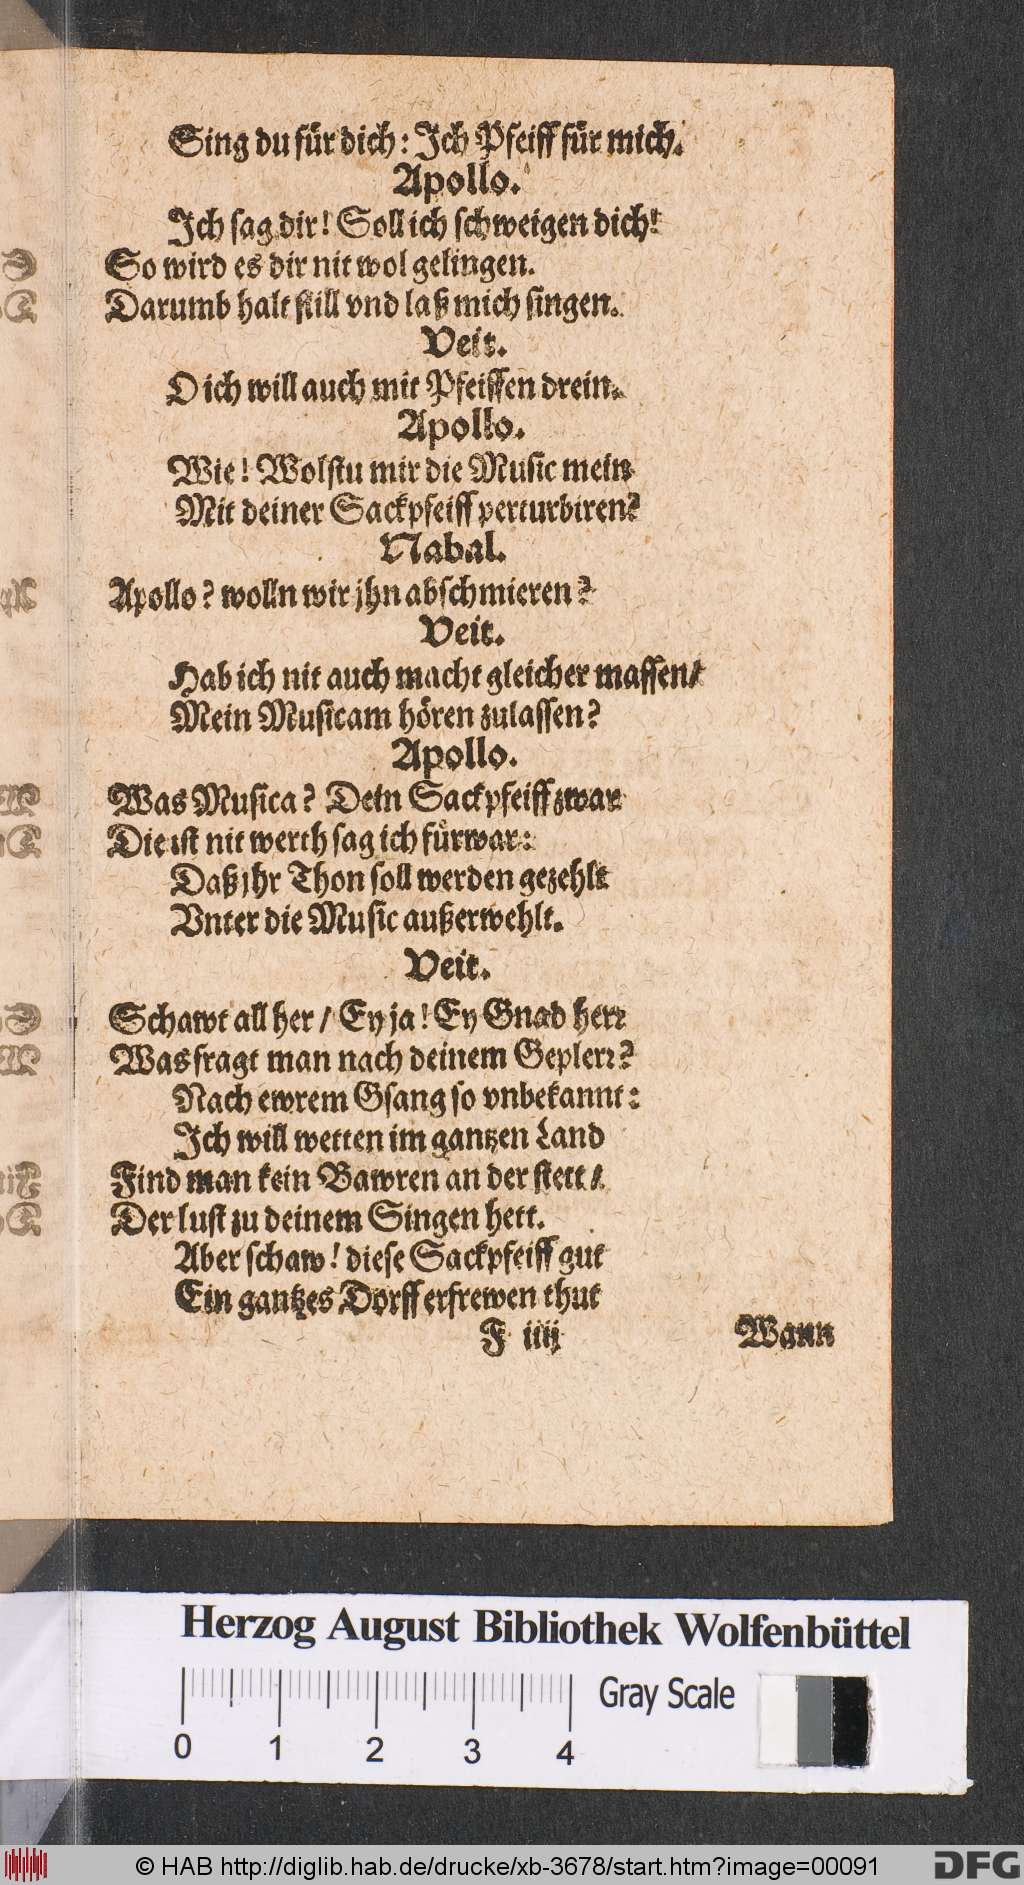 Sing du für dich: Ich Pfeiff für mich.
Apollo.
Ich sag dir! Soll ich schweigen dich!
So wird es dir nit wol gelingen.
Darumb halt still vnd laß mich singen.
Veit.
O ich will auch mit Pfeiffen drein.
Apollo.
Wie! Wolstu mir die Music mein
Mit deiner Sackpfeiff perturbiren?
Nabal.
Apollo? wolln wir jhn abschmieren?
Veit.
Hab ich nit auch macht gleicher massen/
Mein Musicam hören zulassen?
Apollo.
Was Musica? Dein Sackpfeiff zwar
Die ist nit werth sag ich fürwar:
Daß jhr Thon soll werden gezehlt
Vnter die Music außerwehlt.
Veit.
Schawt all her / Ey ja! Ey Gnad herr
Was fragt man nach deinem Geplerr?
Nach ewrem Gsang so vnbekannt:
Ich will wetten im gantzen Land
Find man kein Bawren an der stett/
Der lust zu deinem Singen hett.
Aber schaw! diese Sackpfeiff gut
Ein gantzes Dorff erfrewen thut
F iiij
Wann
Herzog August Bibliothek Wolfenbüttel
0 1 2 3 4
Gray Scale
© HAB http://diglib.hab.de/drucke/xb-3678/start.htm?image=00091
DFG